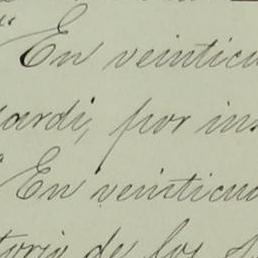 " En veinticu
ardi, por ins
" En veinticu
torio de los